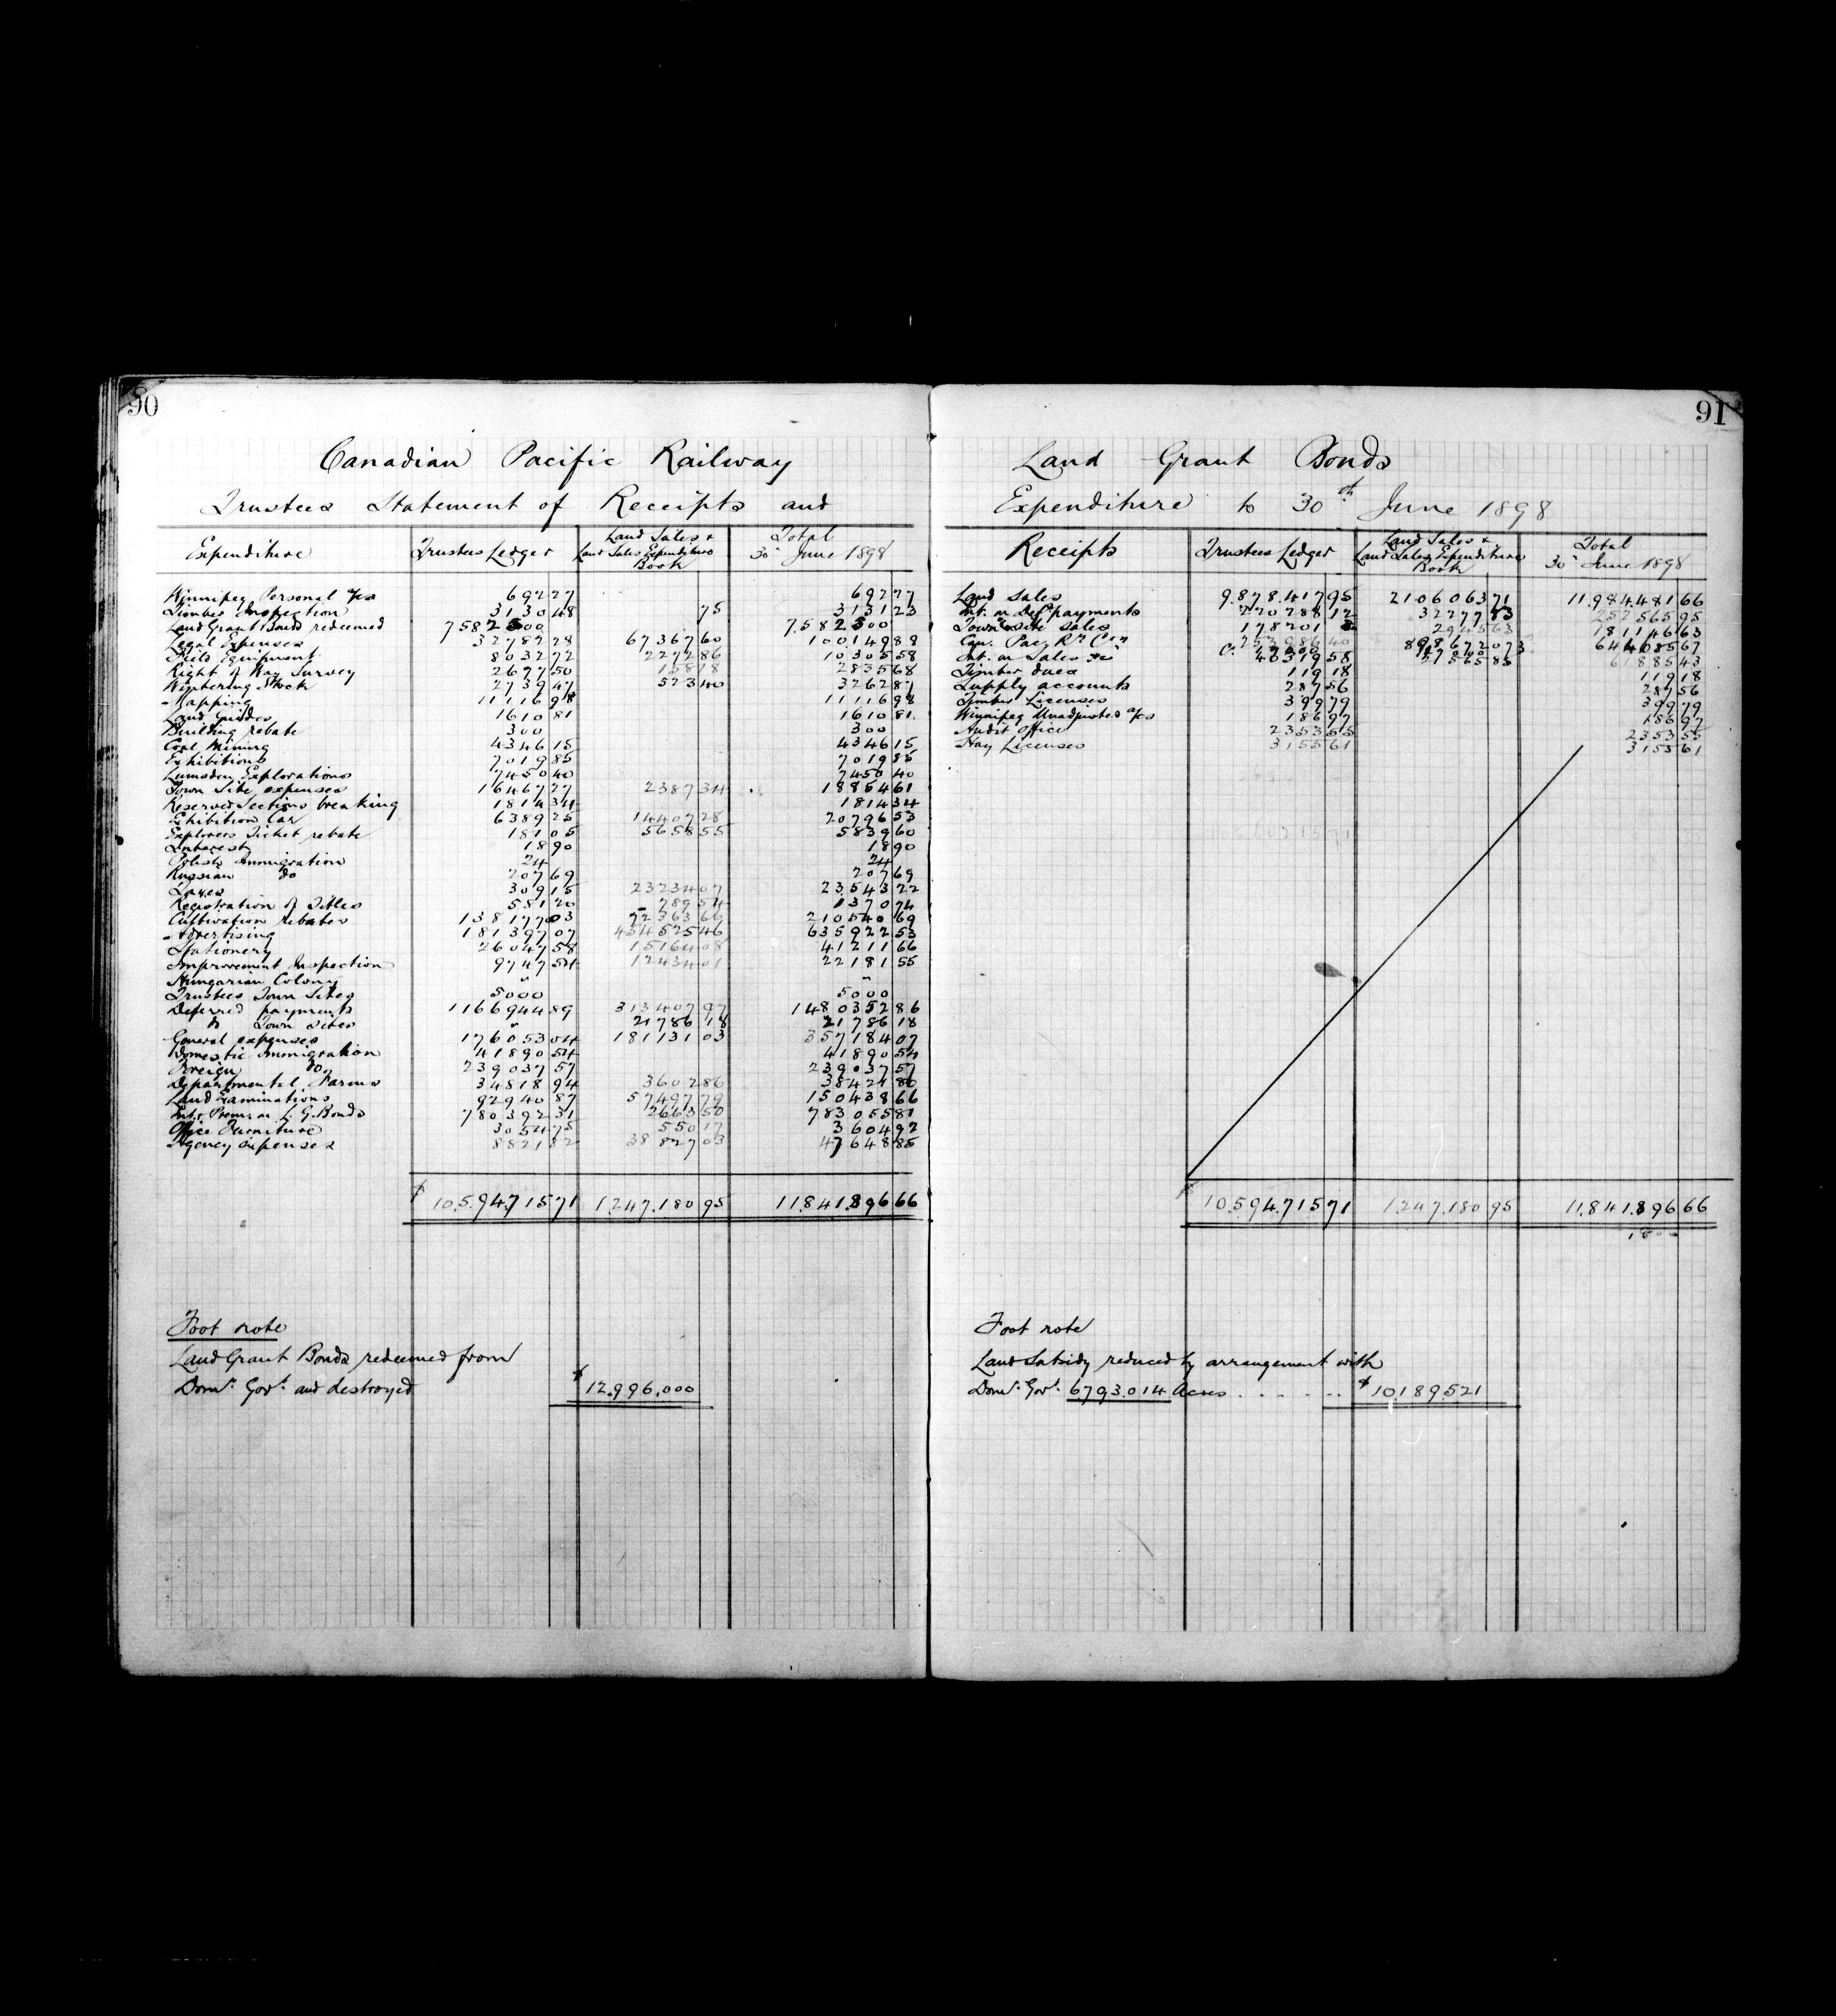 90
Canadian Pacific Railway
Trustees Statement of Receipts and
Expenditure Trustees Ledger Land Sales & Land Sales Expenditure Book Total 30" June 1898
Winnipeg Personal a/cs 692 27 692 27
Timber Inspection 3130 48 75 3131 23
Land Grant Bonds redeemed 7582500 7,582500
Legal Expenses 32782 28 67367 60 100149 88
Field Equipment 8032 72 2272 86 10305 58
Right of Way Survey 2677 50 158 18 2835 68
Wintering Stock 2739 47 523 40 3262 87
Mapping 11116 98 11116 98
Land Guides 1610 81 1610 81
Building rebate 300 300
Coal Mining 4346 15 4346 15
Exhibitions 7019 85 7019 85
Lumsden Explorations 7450 40 7450 40
Town Site expenses 16467 27 2387 34 18854 61
Reserved Sections breaking 1814 34 1814 34
Exhibition Car 6389 25 14407 28 20796 53
Explorers Ticket rebate 181 05 5658 55 5839 60
Interest 18 90 18 90
Polish Immigration 24 24
Russian do 207 69 207 69
Taxes 309 15 23234 07 23543 22
Registration of Titles 581 20 789 54 1370 74
Cultivation rebates 138177 03 72363 66 210540 69
Advertising 181397 07 454525 46 635922 53
Stationery 26047 58 15164 08 41211 66
Improvement Inspection 9747 54 12434 01 22181 55
Hungarian Colony " "
Trustees Town Sites 5000 5000
Deferred payments 1166944 89 313407 97 1480352 86
do Town Sites " 21786 18 21786 18
General expenses 176053 04 181131 03 357184 07
Domestic Immigration 41890 54 41890 54
Foreign do 239037 57 239037 57
Departmental Farms 34818 94 3602 86 38421 80
Land Examinations 92940 87 57497 79 150438 66
Int & Prem. on L. G. Bonds 780392 31 2663 50 783055 81
Office Furniture 3054 75 550 17 3604 92
Agency expenses 8821 82 38827 03 47648 85
$ 10,594,715 71 1,247,180 95 11,841,896 66
Foot note
Land Grant Bonds redeemed from
Domn. Govt. and destroyed $ 12,996,000
91
Land Grant Bonds
Expenditure to 30th June 1898
Receipts Trustees Ledger Land Sales & Land Sales Expenditure Book Total 30" June 1898
Land Sales 9,878,417 95 2106063 71 11,984,481 66
Int. on Defd payments 220288 12 32277 83 252565 95
Town Site Sales 2945 63 181146 63
Can. Pac. Ry Coy 644085 67
Int. on Sales &c 40319 58 61885 43
Timber dues 119 18 119 18
Supply accounts 287 56 287 56
Timber Licenses 399 79 399 79
Winnipeg Unadjusted a/cs 186 97 186 97
Audit office 2353 55 2353 55
Hay Licenses 3155 61 3155 61
$ 10,594,715 71 1,247,180 95 11,841,896 66
Foot note
Land Subsidy reduced by arrangement with
Domn. Govt. 6793.014 Acres . . . . . . $ 10189521